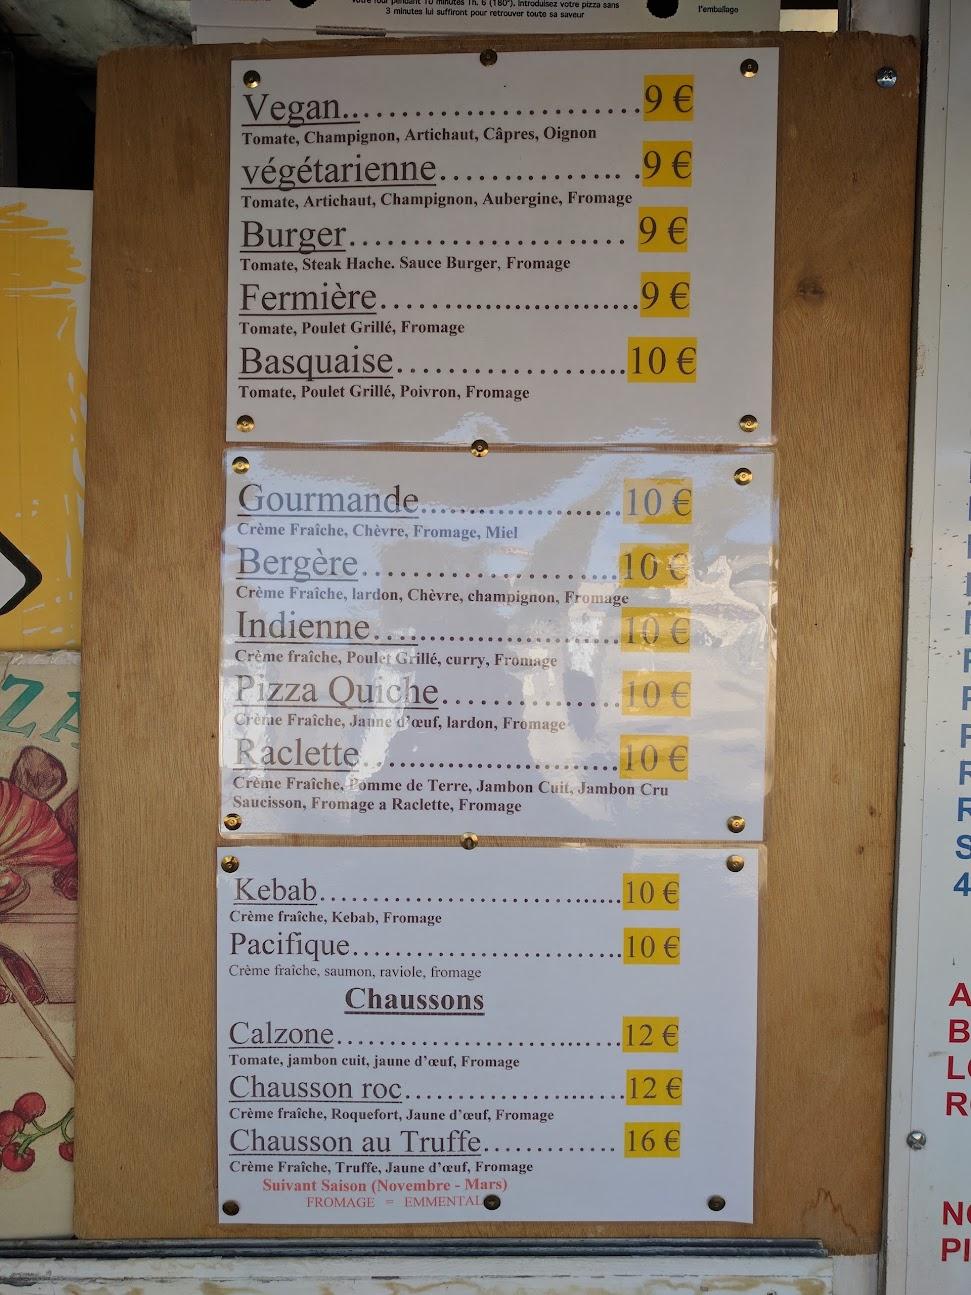 votre four pendant 10 minutes Th. 6 (180°). Introduisez votre pizza sans
3 minutes lui suffiront pour retrouver toute sa saveur
l'emballage
Vegan..................................9 €
Tomate, Champignon, Artichaut, Câpres, Oignon
végétarienne.................... .9 €
Tomate, Artichaut, Champignon, Aubergine, Fromage
Burger............................ 9 €
Tomate, Steak Hache. Sauce Burger, Fromage
Fermière.............................9 €
Tomate, Poulet Grillé, Fromage
Basquaise.........................10 €
Tomate, Poulet Grillé, Poivron, Fromage
Gourmande.......................10 €
Crème Fraîche, Chèvre, Fromage, Miel
Bergère............................10 €
Crème Fraîche, lardon, Chèvre, champignon, Fromage
Indienne............................10 €
Crème fraîche, Poulet Grillé, curry, Fromage
Pizza Quiche....................10 €
Crème Fraîche, Jaune d'œuf, lardon, Fromage
Raclette.............................10 €
Crème Fraîche, Pomme de Terre, Jambon Cuit, Jambon Cru
Saucisson, Fromage a Raclette, Fromage
Kebab.................................10 €
Crème fraîche, Kebab, Fromage
Pacifique..............................10 €
Crème fraîche, saumon, raviole, fromage
Chaussons
Calzone................................12 €
Tomate, jambon cuit, jaune d'œuf, Fromage
Chausson roc........................12 €
Crème fraîche, Roquefort, Jaune d'œuf, Fromage
Chausson au Truffe............. 16 €
Crème Fraîche, Truffe, Jaune d'œuf, Fromage
Suivant Saison (Novembre - Mars)
FROMAGE = EMMENTAL
ZA